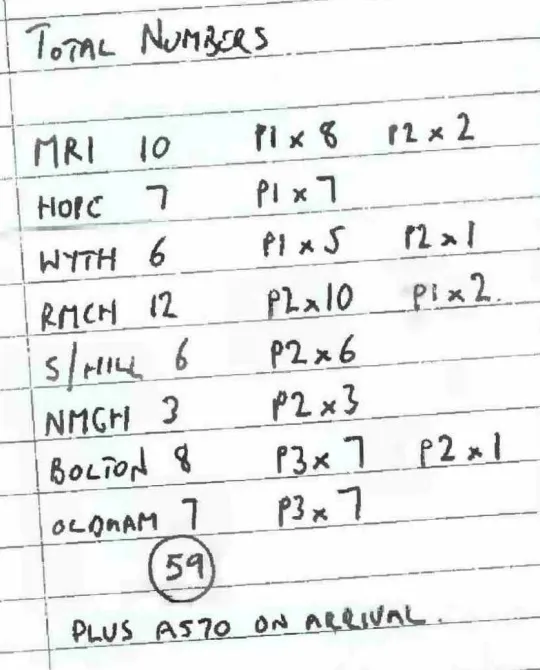 TOTAL NUMBERS
MRI 10 P1 x 8 P2 x 2
HOPE 7 P1 x 7
WYTH 6 P1 x 5 P2 x 1
RMCH 12 P2 x 10 P1 x 2.
S/HILL 6 P2 x 6
NMGH 3 P2 x 3
BOLTON 8 P3 x 7 P2 x 1
OLDHAM 7 P3 x 7
59
PLUS A570 ON ARRIVAL.